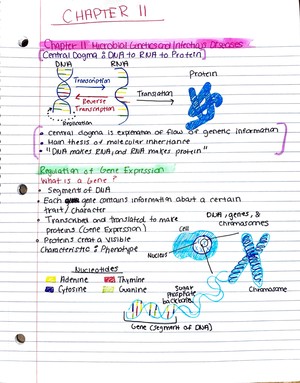 CHAPTER 11
Chapter 11 Microbial Genetics and Infectious Diseases
Central Dogma : DNA to RNA to Protein
DNA RNA Protein
Transcription
Translation
Reverse
Transcription
Replication
• Central dogma is explanation of flow of genetic information
• Main thesis of molecular inheritance
• "DNA makes RNA, and RNA makes protein"
Regulation of Gene Expression
What is a Gene?
• Segment of DNA
• Each gene contains information about a certain
trait / character
• Transcribed and translated to make
proteins (Gene Expression)
• Proteins creat a visible
Characteristic : Phenotype
DNA, genes, &
chromosomes
Cell
Nucleus
Chromosome
Nucleotides
Adenine Thymine
Cytosine Guanine
Sugar
Phosphate
backbone
Gene (segment of DNA)